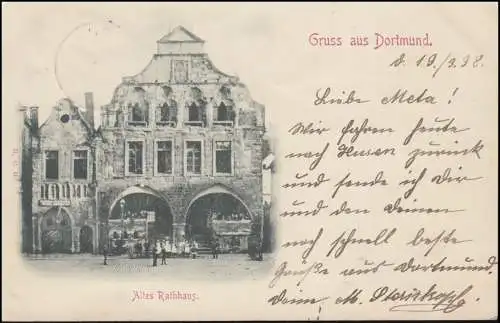 Gruss aus Dortmund.
d. 19./3.98.
Liebe Meta!
Wir fahren heute
nach Husen zurück
und sende ich Dir
und den Deinen
noch schnell beste
Grüße aus Dortmund.
Deine M.
Altes Rathhaus.